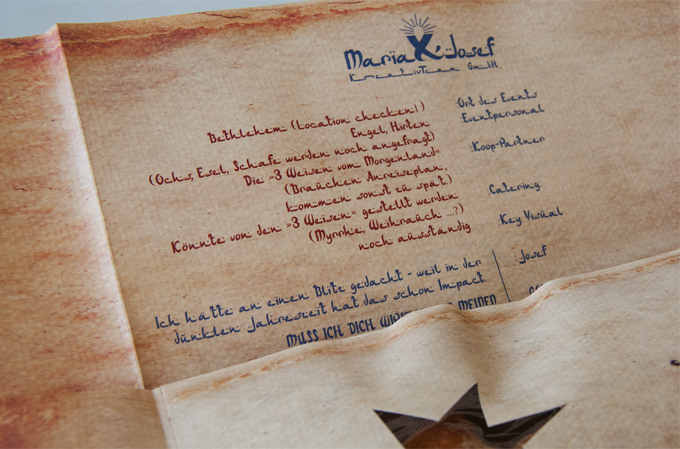 Maria X Josef
Kreativteam GmbH
Bethlehem (Location checken!) :Ort des Events
Engel, Hirten :Eventpersonal
(Ochs, Esel, Schafe werden noch angefragt)
Die »3 Weisen vom Morgenland« :Koop-Partner
(Brauchen Anreiseplan,
kommen sonst zu spät)
Könnte von den »3 Weisen“ gestellt werden :Catering
(Myrrhe, Weihrauch ...?)
noch ausständig :Key Visual
Ich hätte an einen Blitz gedacht - weil in der :Josef
dunklen Jahreszeit hat das schon Impact.
MUSS ICH DICH MEINEN